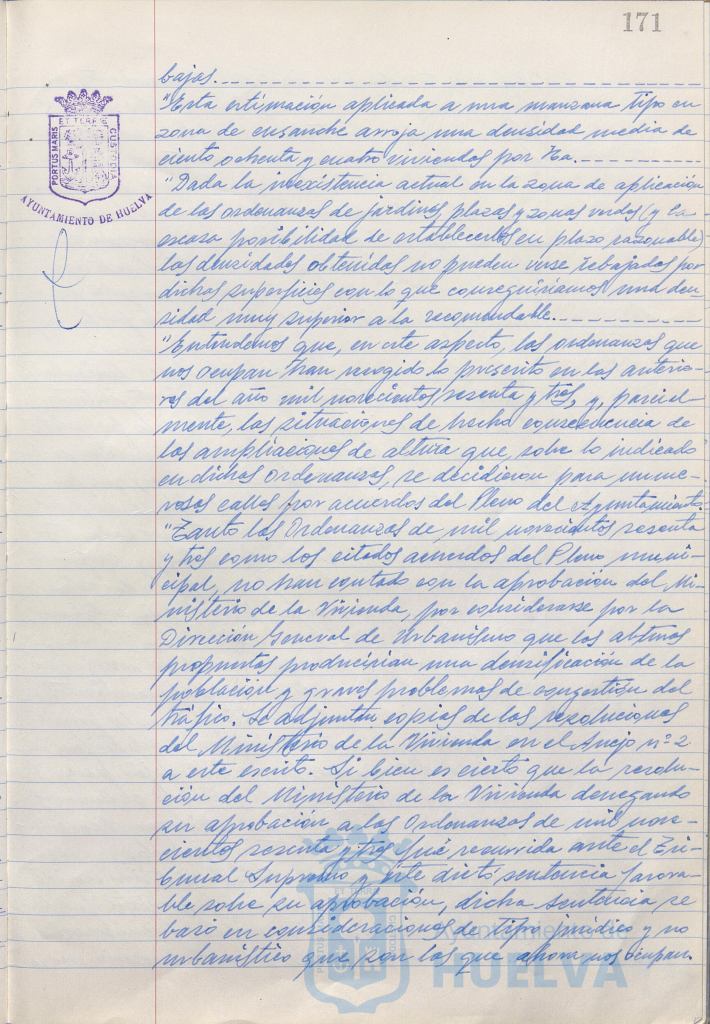 171
bajas.
"Esta estimación aplicada a una manzana tipo en
zona de ensanche arroja una densidad media de
ciento ochenta y cuatro viviendas por Ha.
"Dada la inexistencia actual en la zona de aplicación
de las ordenanzas de jardines plazas y zonas verdes (y la
escasa posibilidad de establecerlos en plazo razonable)
las densidades obtenidas no pueden verse rebajadas por
dichas superficies con lo que conseguiríamos una den-
sidad muy superior a la recomendable.
"Entendemos que, en este aspecto, las ordenanzas que
nos ocupan han recogido lo prescrito en las anterio-
res del año mil novecientos sesenta y tres, y, parcial-
mente, las situaciones de hecho consecuencia de
las ampliaciones de altura que, sobre lo indicado
en dichas Ordenanzas, se decidieron para nume-
rosas calles por acuerdos del Pleno del Ayuntamiento.
"Tanto las Ordenanzas de mil novecientos sesenta
y tres como los citados acuerdos del Pleno muni-
cipal, no han contado con la aprobación del Mi-
nisterio de la Vivienda, por considerarse por la
Dirección General de Urbanismo que las alturas
propuestas producirían una densificación de la
población y graves problemas de congestión del
tráfico. Se adjuntan copias de las resoluciones
del Ministerio de la Vivienda en el Anejo nº 2
a este escrito. Si bien es cierto que la resolu-
ción del Ministerio de la Vivienda denegando
su aprobación a las Ordenanzas de mil nove-
cientos sesenta y tres fué recurrida ante el Tri-
bunal Supremo y este dictó sentencia favora-
ble sobre su aprobación, dicha sentencia se
basó en consideraciones de tipo jurídico y no
urbanístico que son las que ahora nos ocupan.
PORTUS MARIS ET TERRE CUSTODIA
AYUNTAMIENTO DE HUELVA
Ayuntamiento de
HUELVA